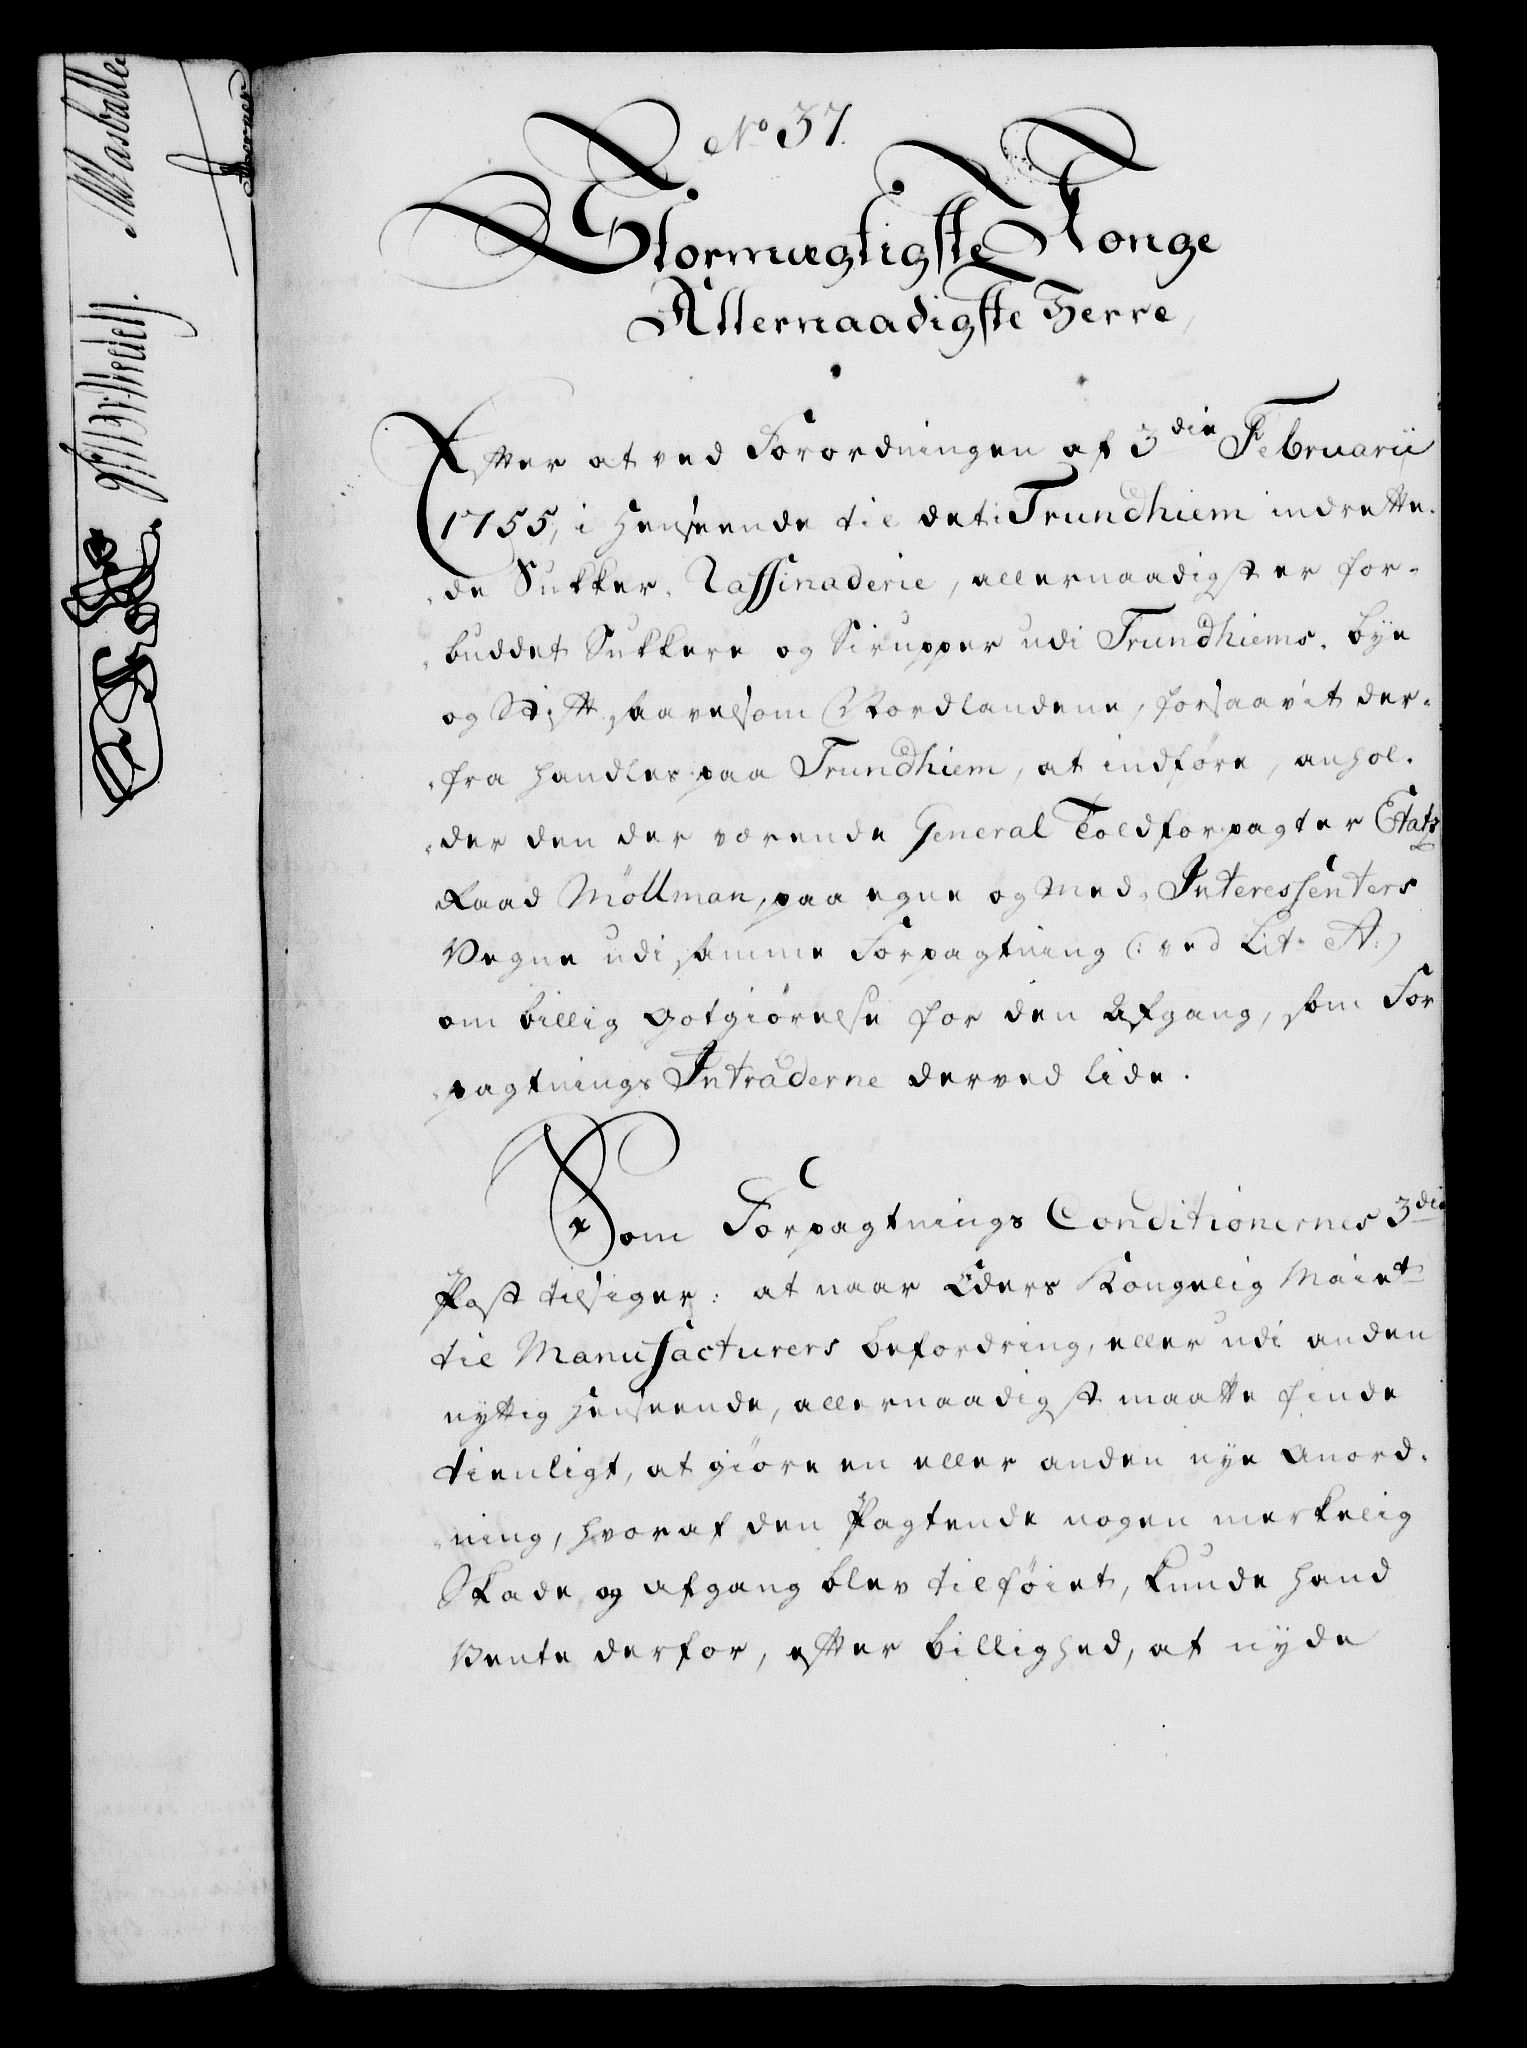 No 37.
Stormægtigste Konge
Allernaadigste Herre,
Efter at ved Forordningen af 3die Februarii
1755, i Henseende til det i Trundhiem indrette-
de Sukker-Raffinaderie, allernaadigst er for-
buddet Sukkere og Sirupper udi Trundhiems-bye
og Stift saavelsom Nordlandene, forsaavit der-
fra handles paa Trundhiem, at indføre, anhol-
der den der værende General Toldforpagter Etats
Raad Möllman, paa egne og Med-Interessenters
Vegne udi samme Forpagtning (: ved Lit. A:)
om billig Gotgiørelse for den Afgang, som For
pagtnings Intraderne derved lide.
Som Forpagtnings Conditionernes 3die
Post tilsiger: at naar Eders Kongelig Maiet
til Manufacturers befordring, eller udi anden
nyttig Henseende, allernaadigst maatte finde
tienligt, at giøre en eller anden nye Anord-
ning, hvoraf den Pagtende nogen merkelig
Skade og afgang blev tilføiet, kunde hand
Vente derfor, efter billighed, at nyde